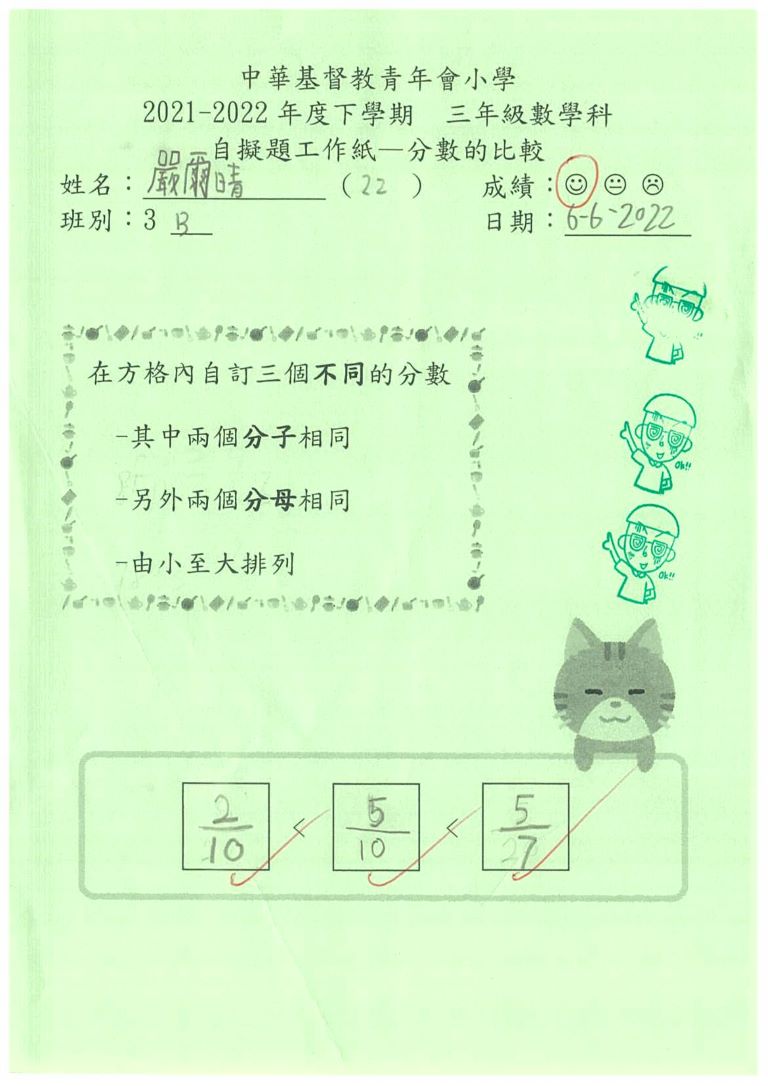 中華基督教青年會小學
2021-2022 年度下學期 三年級數學科
自擬題工作紙—分數的比較
姓名：嚴爾晴 （22） 成績：☺ 😐 ☹
班別：3 B 日期：6-6-2022
在方格內自訂三個不同的分數
-其中兩個分子相同
-另外兩個分母相同
-由小至大排列
Oh!!
Oh!!
2/10 < 5/10 < 5/7